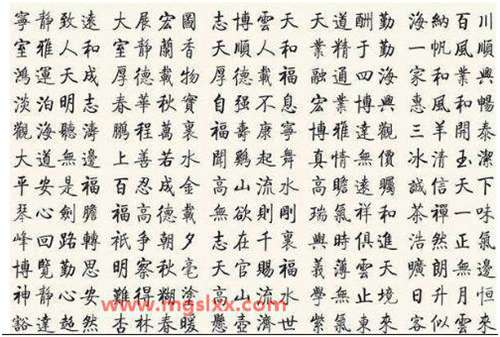 寧靜致遠 大展宏圖 志博雲天 天道酬勤 海納百川
室雅人和 室靜蘭香 大順人和 業精于勤 一帆風順
鴻運天成 厚德載物 厚德載福 融通四海 家和業興
淡泊明志 春華秋實 自强不息 宏業博興 惠風和暢
觀海聽濤 鵬程萬裏 福壽康寧 博雅達觀 三羊開泰
大道無邊 上善若水 聞鷄起舞 真情無價 冰清玉潔
平安是福 百忍成金 高山流水 高瞻遠矚 誠信天下
琴心劍膽 福高德載 無欲則剛 瑞氣祥和 茶禪一味
峰回路轉 祇爭朝夕 志在千裏 與時俱進 浩然正氣
博覽勤思 明察秋毫 天官賜福 義薄雲天 朗無邊
神靜心安 難得糊塗 高山流水 學無止境 日升月恒
豁達超然 杏林春暖 懸壺濟世 紫氣東來 客似雲來
www.mgslxx.com